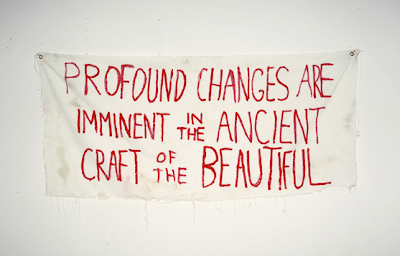 PROFOUND CHANGES ARE
IMMINENT IN THE ANCIENT
CRAFT OF THE BEAUTIFUL